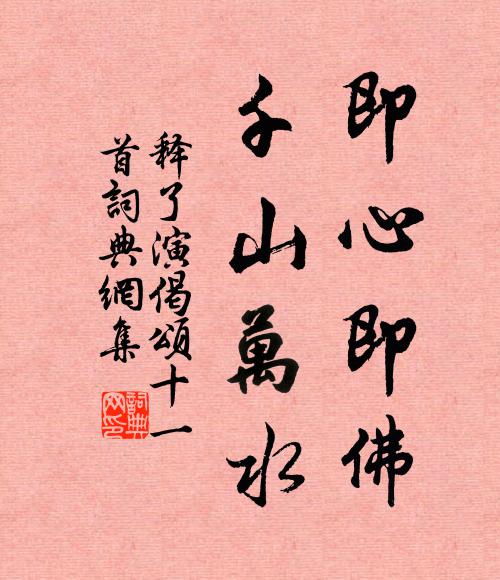 即心即佛
千山萬水
释了演偈頌十一
首詞典網集
詞典
网印